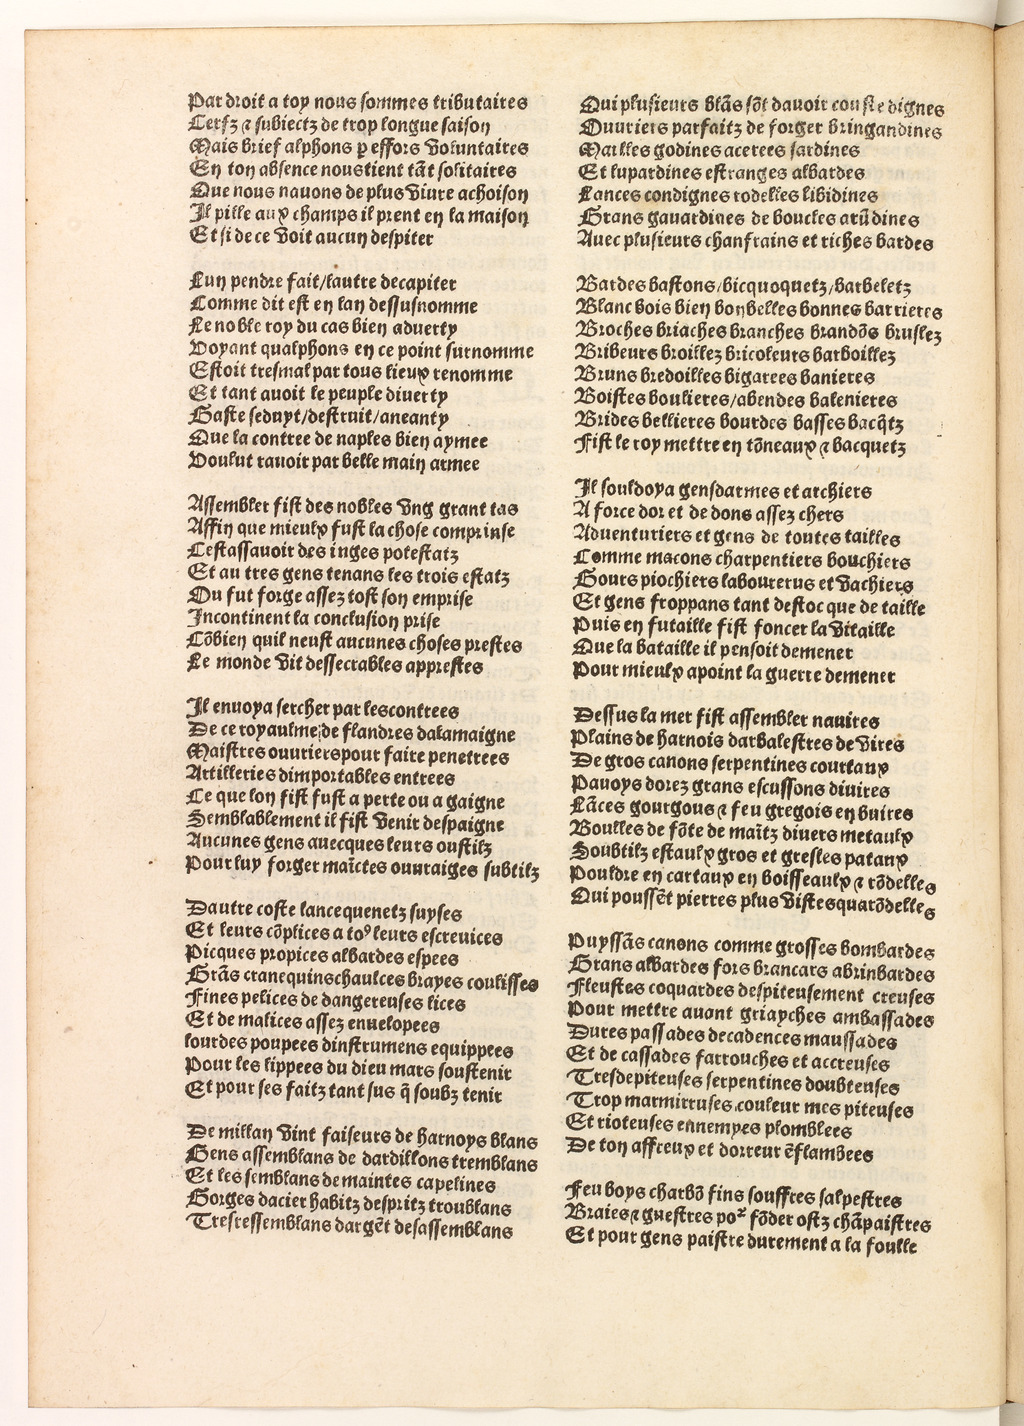 Par droit a toy nous sommes tributaires
Cerfz ⁊ subiectz de trop longue saison
Mais brief alphons ꝑ effors voluntaires
En ton absence nous tient tãt solitaires
Que nous nauons de plus viure achoison
Il pille aux champs il prent en la maison
Et si de ce voit aucun despiter
Lun pendre fait/lautre decapiter
Comme dit est en lan dessusnomme
Le noble roy du cas bien aduerty
Voyant qualphons en ce point surnomme
Estoit tresmal par tous lieux renomme
Et tant auoit le peuple diuerty
Gaste seduyt/destruit/aneanty
Que la contree de naples bien aymee
Voulut rauoir par belle main armee
Assembler fist des nobles vng grant tas
Affin que mieulx fust la chose comprinse
Cestassauoir des iuges potestatz
Et au tres gens tenans les trois estatz
Ou fut forge assez tost son emprise
Incontinent la conclusion prise
Cõbien quil neust aucunes choses prestes
Le monde vit dessecrables apprestes
Il enuoya sercher par les contrees
De ce royaulme/de flandres dalamaigne
Maistres ouuriers pour faire penetrees
Artilleries dimportables entrees
Ce que lon fist fust a perte ou a gaigne
Semblablement il fist venir despaigne
Aucunes gens auecques leurs oustilz
Pour luy forger maĩctes ouuraiges subtilz
Dautre coste lancequenetz suyses
Et leurs cõplices a toꝰ leurs escreuices
Picques propices albardes espees
Grãs cranequins chaulces brayes coulisses
Fines pelices de dangereuses lices
Et de malices assez enuelopees
lourdes poupees dinstrumens equippees
Pour les lippees du dieu mars soustenir
Et pour ses faitz tant sus q̃ soubz tenir
De millan vint faiseurs de harnoys blans
Gens assemblans de dardillons tremblans
Et les semblans de maintes capelines
Gorges dacier habitz despritz troublans
Tresressemblans dargẽt desassemblans
Qui plusieurs blãs sõt dauoir conste dignes
Ouuriers parfaitz de forger bringandines
Mailles godines acerees sardines
Et lupardines estranges albardes
Lances condignes rodelles libidines
Grans gauardines de boucles arũdines
Auec plusieurs chanfrains et riches bardes
Bardes bastons/bicquoquetz/barbeletz
Blanc bois bien bon belles bonnes barrieres
Broches briaches branches brandõs bruslez
Bribeurs broillez bricoleurs barboillez
Bruns bredoilles bigarees banieres
Boistes boulieres/abendes balenieres
Brides bellieres bourdes basses bacq̃tz
Fist le roy mettre en tõneaux ⁊ bacquetz
Il souldoya gensdarmes et archiers
A force dor et de dons assez chers
Aduenturiers et gens de toutes tailles
Comme macons charpentiers bouchiers
Gours piochiers labourerus et vachiers
Et gens froppans tant destoc que de taille
Puis en futaille fist foncer la vitaille
Que la bataille il pensoit demener
Pour mieulx apoint la guerre demener
Dessus la mer fist assembler nauires
Plains de harnois darbalestres de vires
De gros canons serpentines courtaux
Pauoys dorez grans escussons diuires
Lãces gourgous ⁊ feu gregois en buires
Boulles de fõte de maĩtz diuers metaulx
Soubtilz estaulx gros et gresles pataux
Pouldre en cartaux en boisseaulx ⁊ rõdelles
Qui poussẽt pierres plus vistes quarõdelles
Puyssãs canons comme grosses bombardes
Grans albardes fors brancars abrinbardes
Fleustes coquardes despiteusement creuses
Pour mettre auant griayches ambassades
Dures passades decadences maussades
Et de cassades farrouches et accreuses
Tresdepiteuses serpentines doubteuses
Trop marmiteuses couleur mes piteuses
Et rioteuses ennemyes plomblees
De ton affreux et dorreur ẽflambees
Feu boys charbõ fins souffres salpestres
Braies ⁊ guestres poꝛ fõder ostz chãpaistres
Et pour gens paistre durement a la foulle